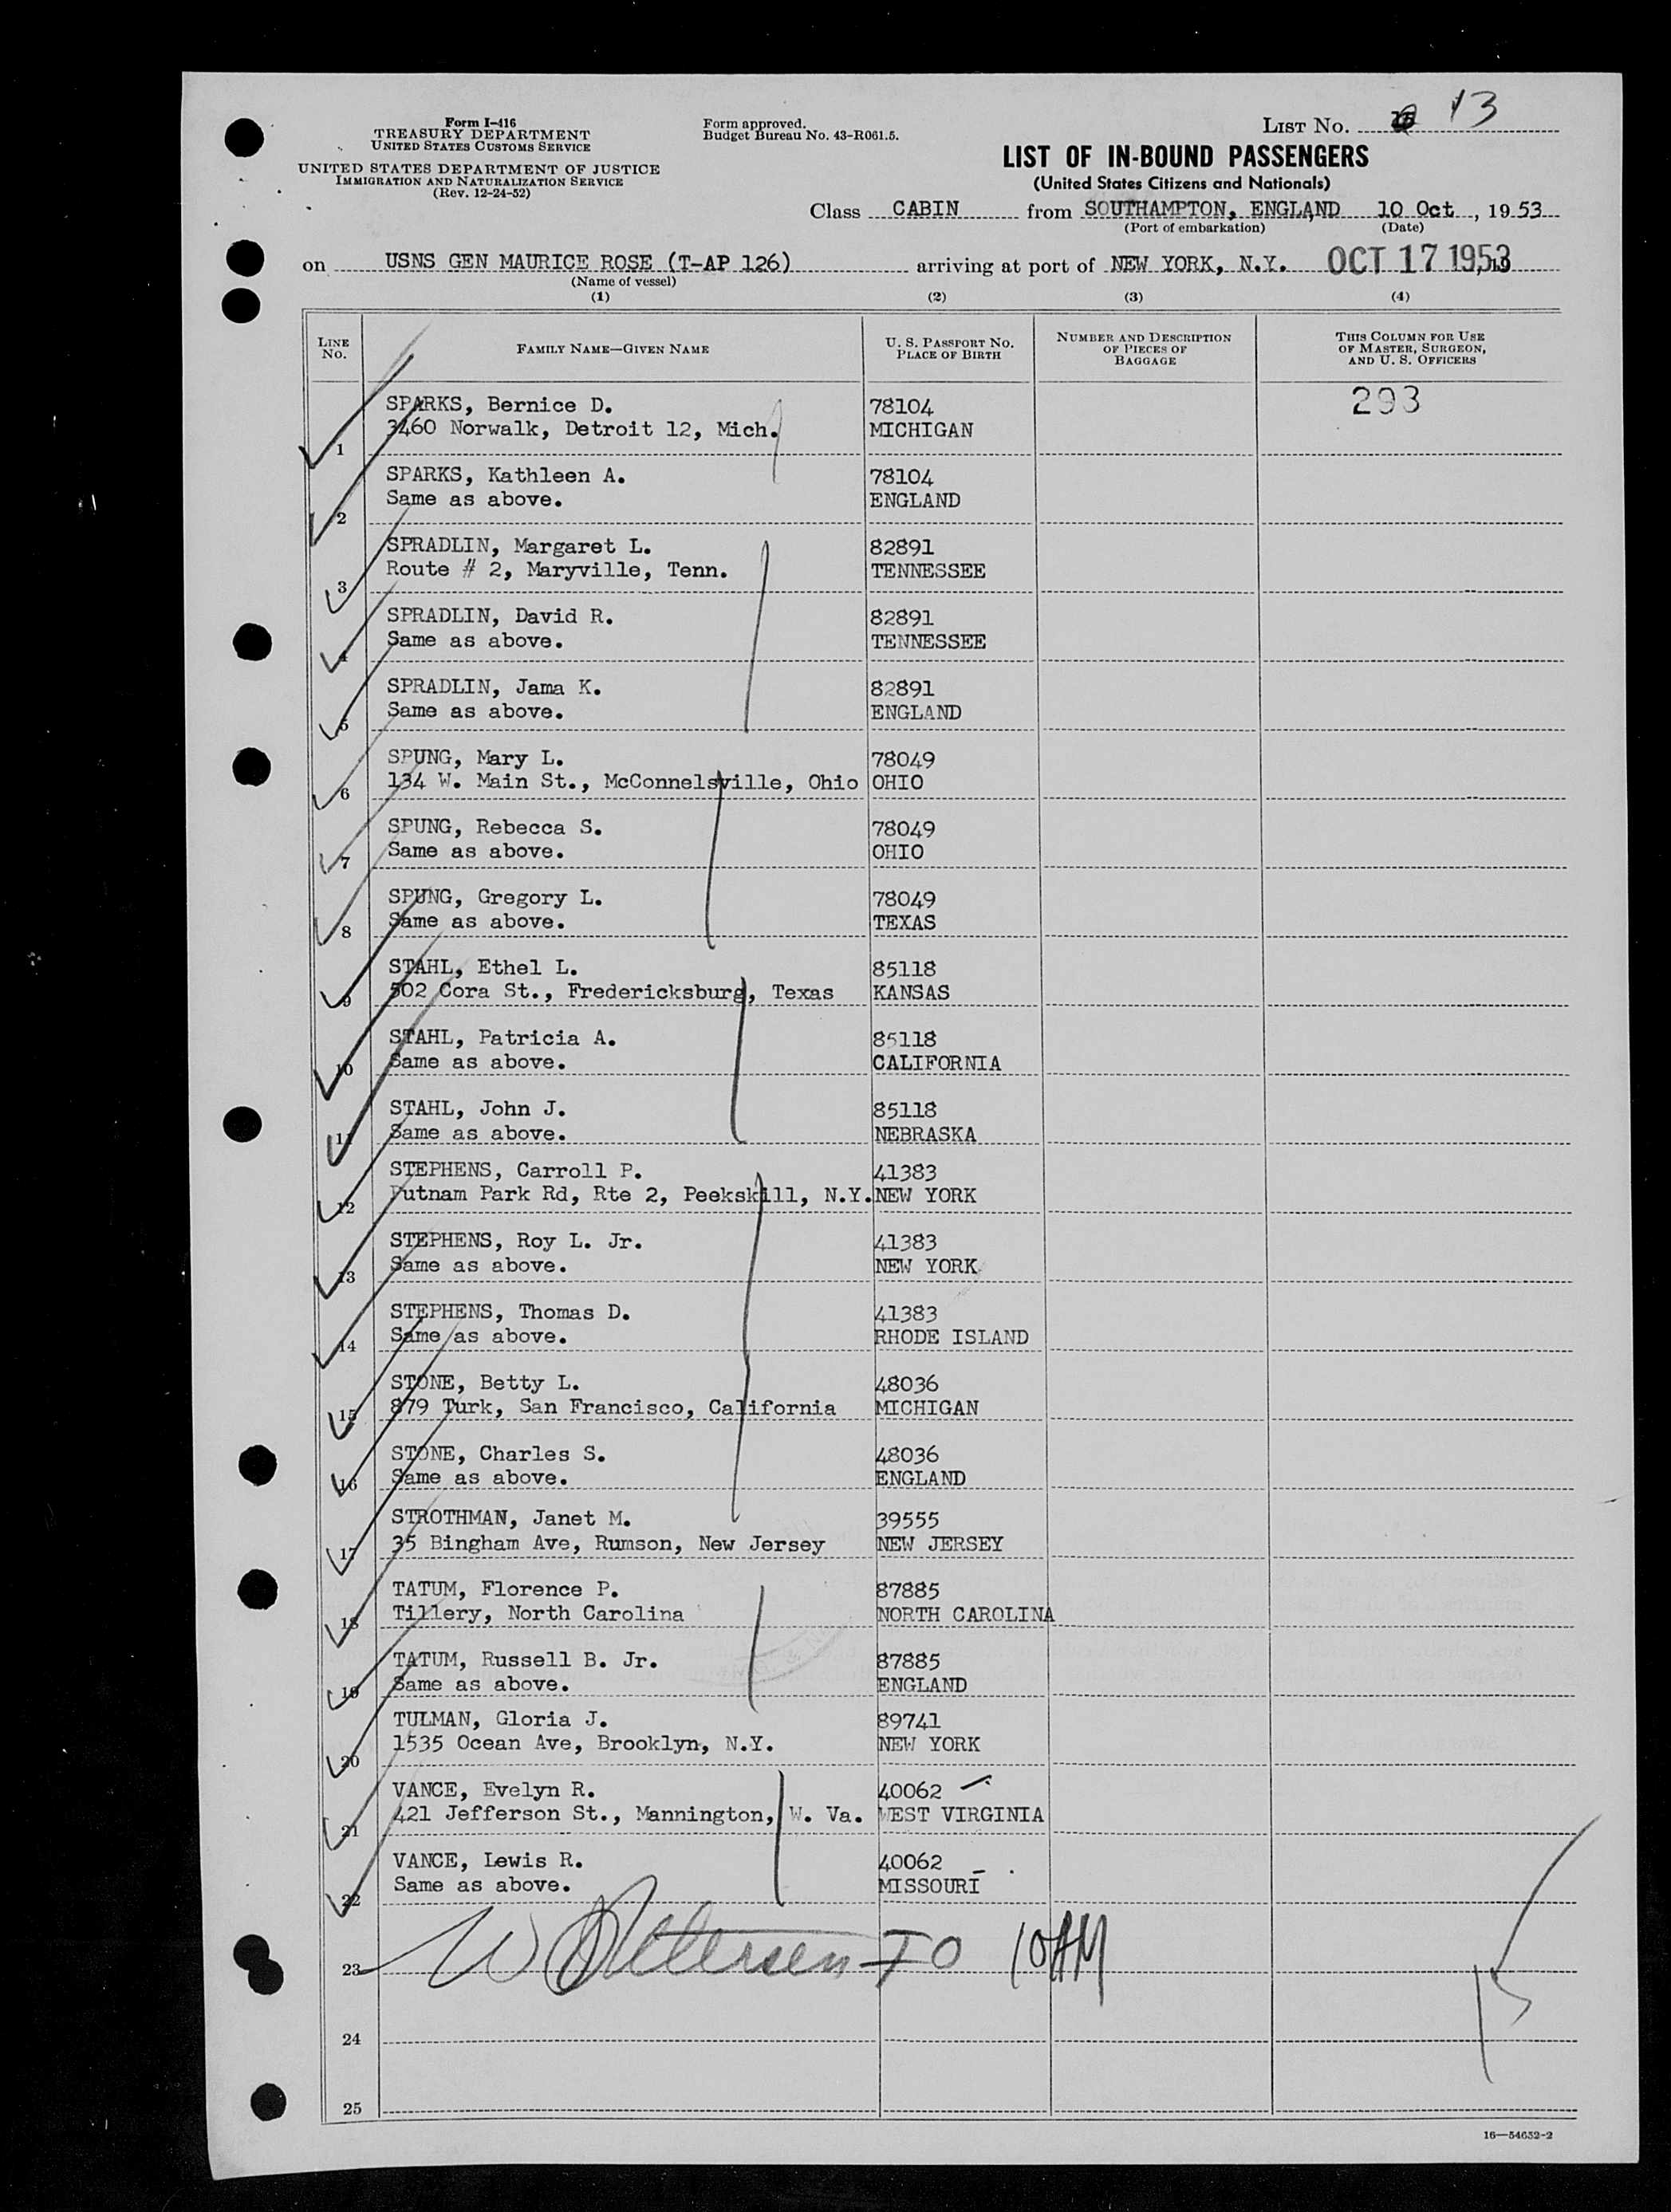 Form I-416
TREASURY DEPARTMENT
UNITED STATES CUSTOMS SERVICE
UNITED STATES DEPARTMENT OF JUSTICE
IMMIGRATION AND NATURALIZATION SERVICE
(Rev. 12-24-52)
Form approved.
Budget Bureau No. 43-R061.5.
LIST NO. 13
LIST OF IN-BOUND PASSENGERS
(United States Citizens and Nationals)
Class CABIN from SOUTHAMPTON, ENGLAND 10 Oct, 1953
(Port of embarkation) (Date)
on USNS GEN MAURICE ROSE (T-AP 126) arriving at port of NEW YORK, N.Y. OCT 17 1953
(Name of vessel)
(1) (2) (3) (4)
LINE NO. FAMILY NAME—GIVEN NAME U. S. PASSPORT NO. PLACE OF BIRTH NUMBER AND DESCRIPTION OF PIECES OF BAGGAGE THIS COLUMN FOR USE OF MASTER, SURGEON, AND U. S. OFFICERS
SPARKS, Bernice D. 78104 293
1 3460 Norwalk, Detroit 12, Mich. MICHIGAN
SPARKS, Kathleen A. 78104
2 Same as above. ENGLAND
SPRADLIN, Margaret L. 82891
3 Route # 2, Maryville, Tenn. TENNESSEE
SPRADLIN, David R. 82891
4 Same as above. TENNESSEE
SPRADLIN, Jama K. 82891
5 Same as above. ENGLAND
SPUNG, Mary L. 78049
6 134 W. Main St., McConnelsville, Ohio OHIO
SPUNG, Rebecca S. 78049
7 Same as above. OHIO
SPUNG, Gregory L. 78049
8 Same as above. TEXAS
STAHL, Ethel L. 85118
9 502 Cora St., Fredericksburg, Texas KANSAS
STAHL, Patricia A. 85118
10 Same as above. CALIFORNIA
STAHL, John J. 85118
11 Same as above. NEBRASKA
STEPHENS, Carroll P. 41383
12 Putnam Park Rd, Rte 2, Peekskill, N.Y. NEW YORK
STEPHENS, Roy L. Jr. 41383
13 Same as above. NEW YORK
STEPHENS, Thomas D. 41383
14 Same as above. RHODE ISLAND
STONE, Betty L. 48036
15 879 Turk, San Francisco, California MICHIGAN
STONE, Charles S. 48036
16 Same as above. ENGLAND
STROTHMAN, Janet M. 39555
17 35 Bingham Ave, Rumson, New Jersey NEW JERSEY
TATUM, Florence P. 87885
18 Tillery, North Carolina NORTH CAROLINA
TATUM, Russell B. Jr. 87885
19 Same as above. ENGLAND
TULMAN, Gloria J. 89741
20 1535 Ocean Ave, Brooklyn, N.Y. NEW YORK
VANCE, Evelyn R. 40062
21 421 Jefferson St., Mannington, W. Va. WEST VIRGINIA
VANCE, Lewis R. 40062
22 Same as above. MISSOURI
23 10AM
24
25
16—54652-2